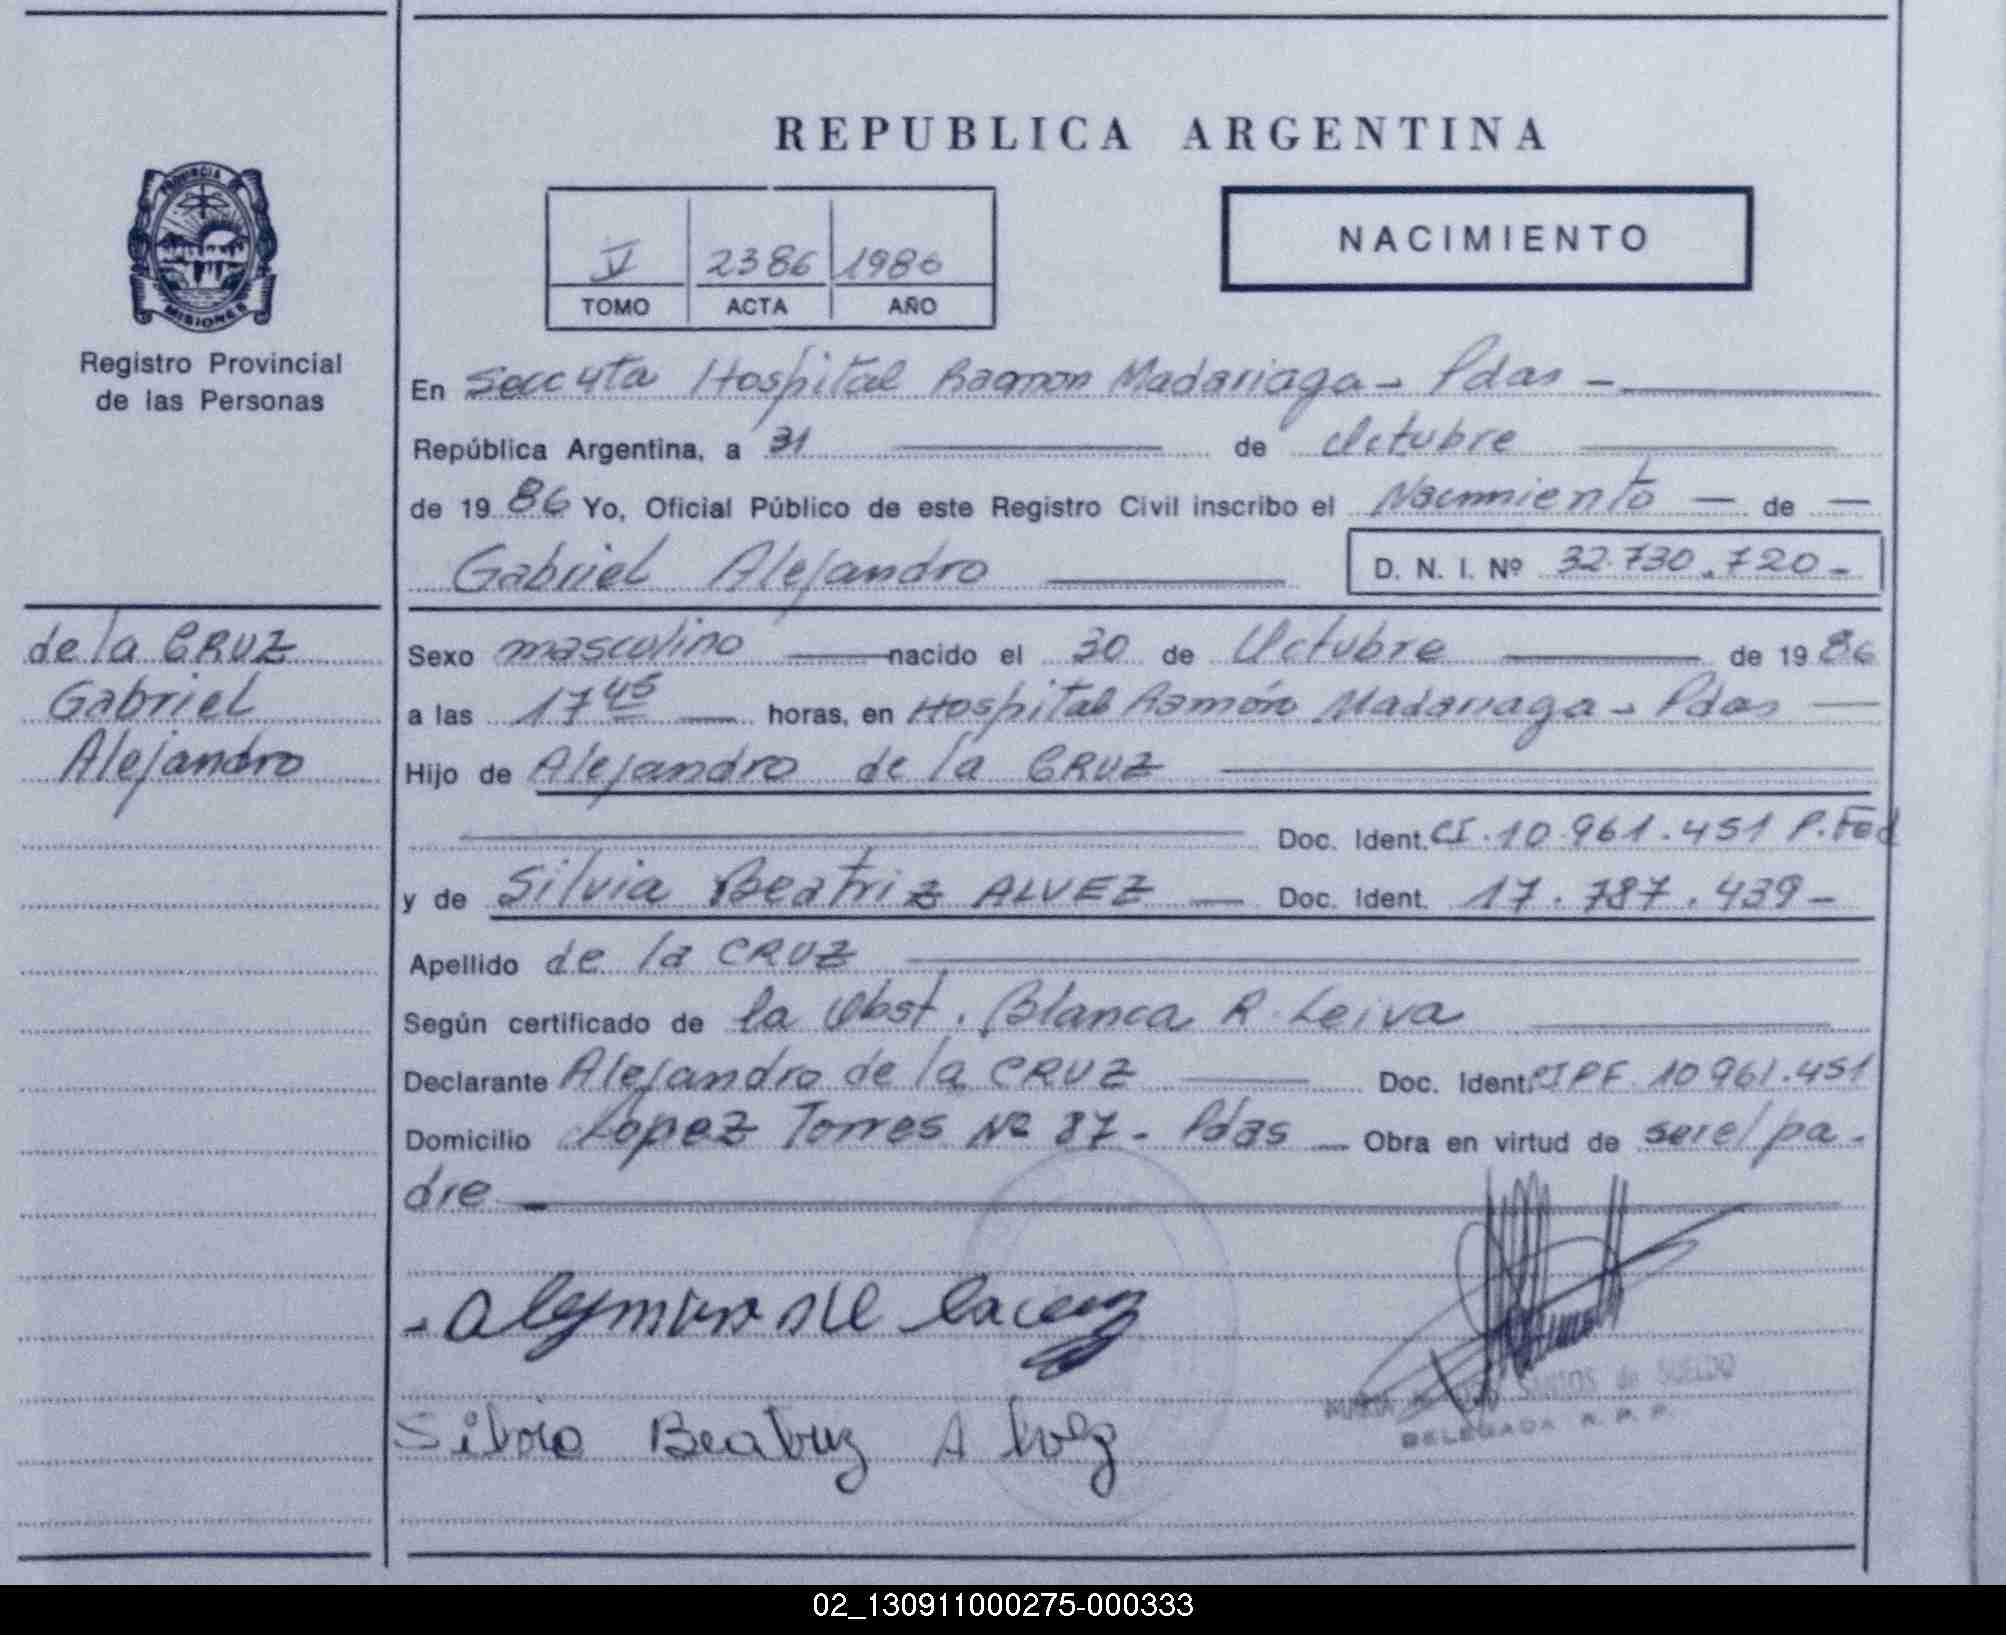 REPUBLICA ARGENTINA
PROVINCIA DE
MISIONES
Registro Provincial
de las Personas
V 2386 1986
TOMO ACTA AÑO
NACIMIENTO
En Secc 4ta Hospital Ramon Madariaga - Pdas -
República Argentina, a 31 de Octubre
de 19 86 Yo, Oficial Público de este Registro Civil inscribo el Nacimiento de
Gabriel Alejandro D. N. I. Nº 32.730.720-
de la CRUZ
Gabriel
Alejandro
Sexo masculino nacido el 30 de Octubre de 19 86
a las 17 45 horas, en Hospital Ramón Madariaga - Pdas
Hijo de Alejandro de la CRUZ
Doc. Ident. CI. 10.961.451 P. Fed
y de Silvia Beatriz ALVEZ Doc. Ident. 17.787.439-
Apellido de la CRUZ
Según certificado de la Obst. Blanca R. Leiva
Declarante Alejandro de la CRUZ Doc. Ident. CIPF 10961.451
Domicilio Lopez Torres Nº 87- Pdas Obra en virtud de ser el pa-
dre
- Alejandro de la cruz
Silvia Beatriz Alvez
MARIA SANTOS de SUELDO
DELEGADA R. P. P.
02_130911000275-000333